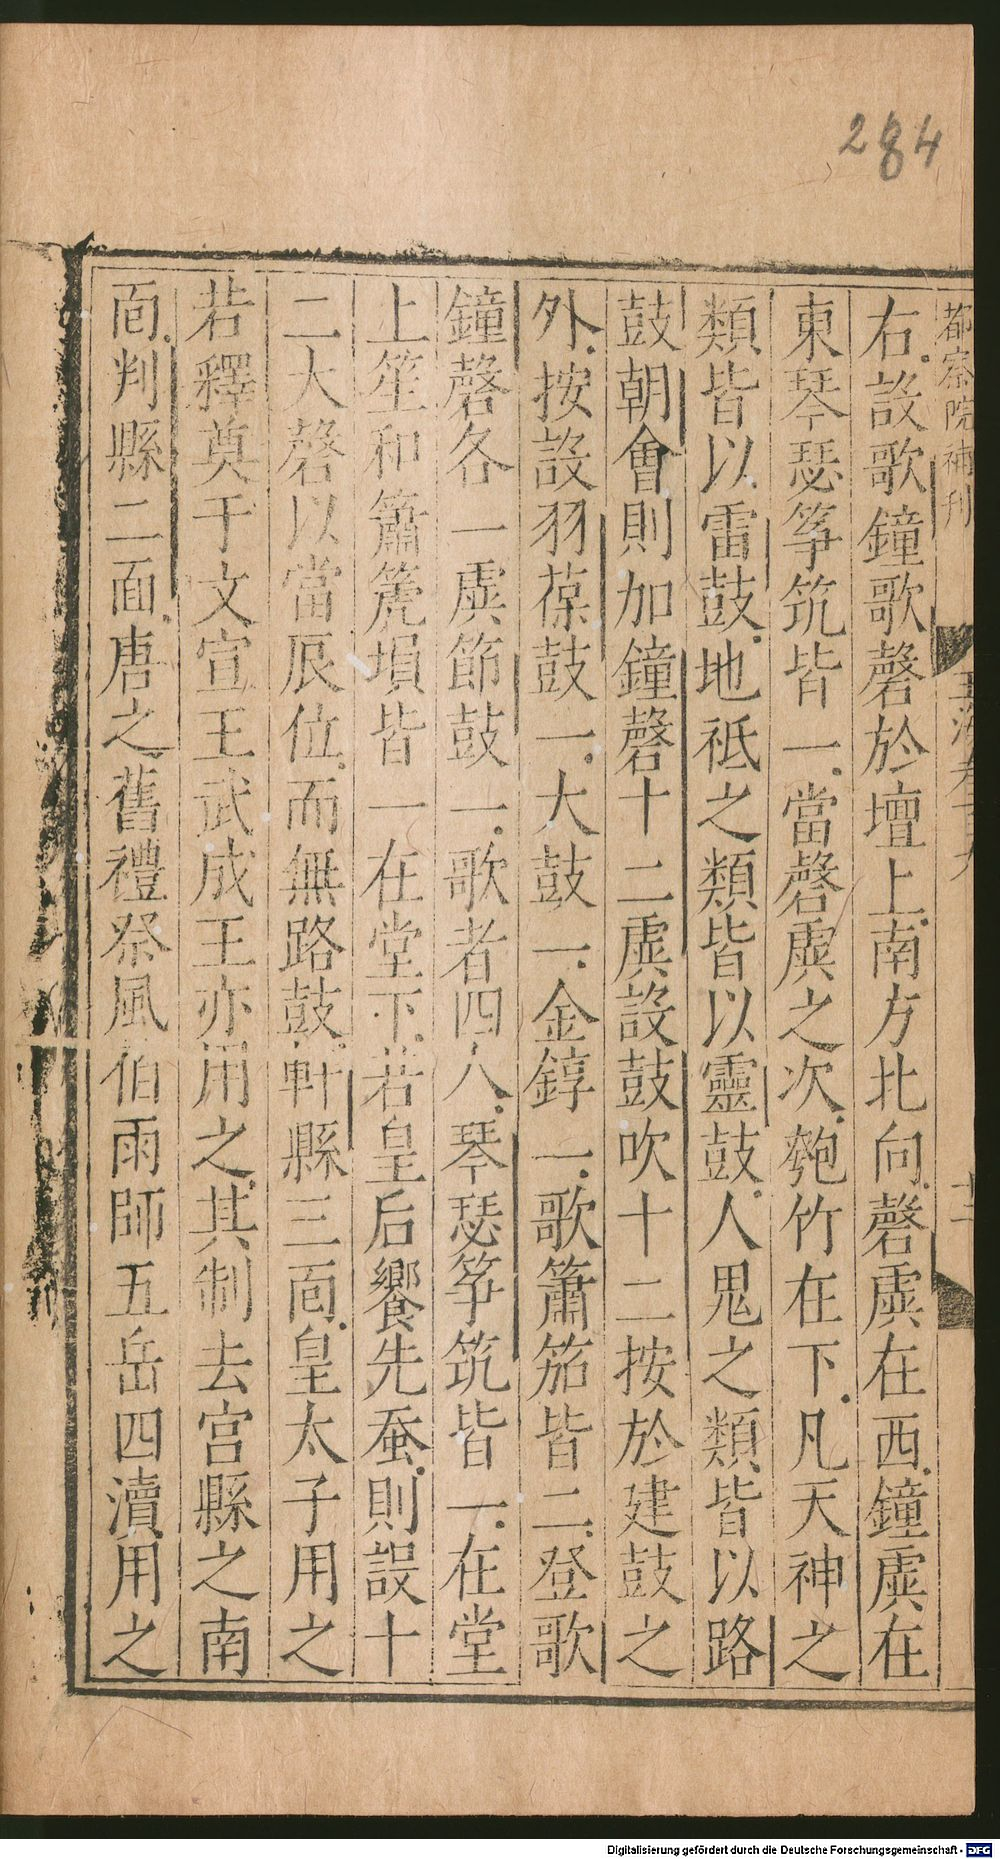 284
都察院補刊
玉海卷一百九
十二
右設歌鐘歌磬於壇上南方北向磬虡在西鐘虡在
東琴瑟筝筑皆一當磬虡之次匏竹在下凡天神之
類皆以雷鼓地祇之類皆以靈鼓人鬼之類皆以路
鼓朝會則加鐘磬十二虡設鼓吹十二按於建鼓之
外按設羽葆鼓一大鼓一金錞一歌簫笳皆二登歌
鐘磬各一虡節鼓一歌者四人琴瑟筝筑皆一在堂
上笙和簫篪塤皆一在堂下若皇后饗先蚕則設十
二大磬以當辰位而無路鼓軒縣三面皇太子用之
若釋奠于文宣王武成王亦用之其制去宫縣之南
面判縣二面唐之舊禮祭風伯雨師五岳四瀆用之
Digitalisierung gefördert durch die Deutsche Forschungsgemeinschaft - DFG